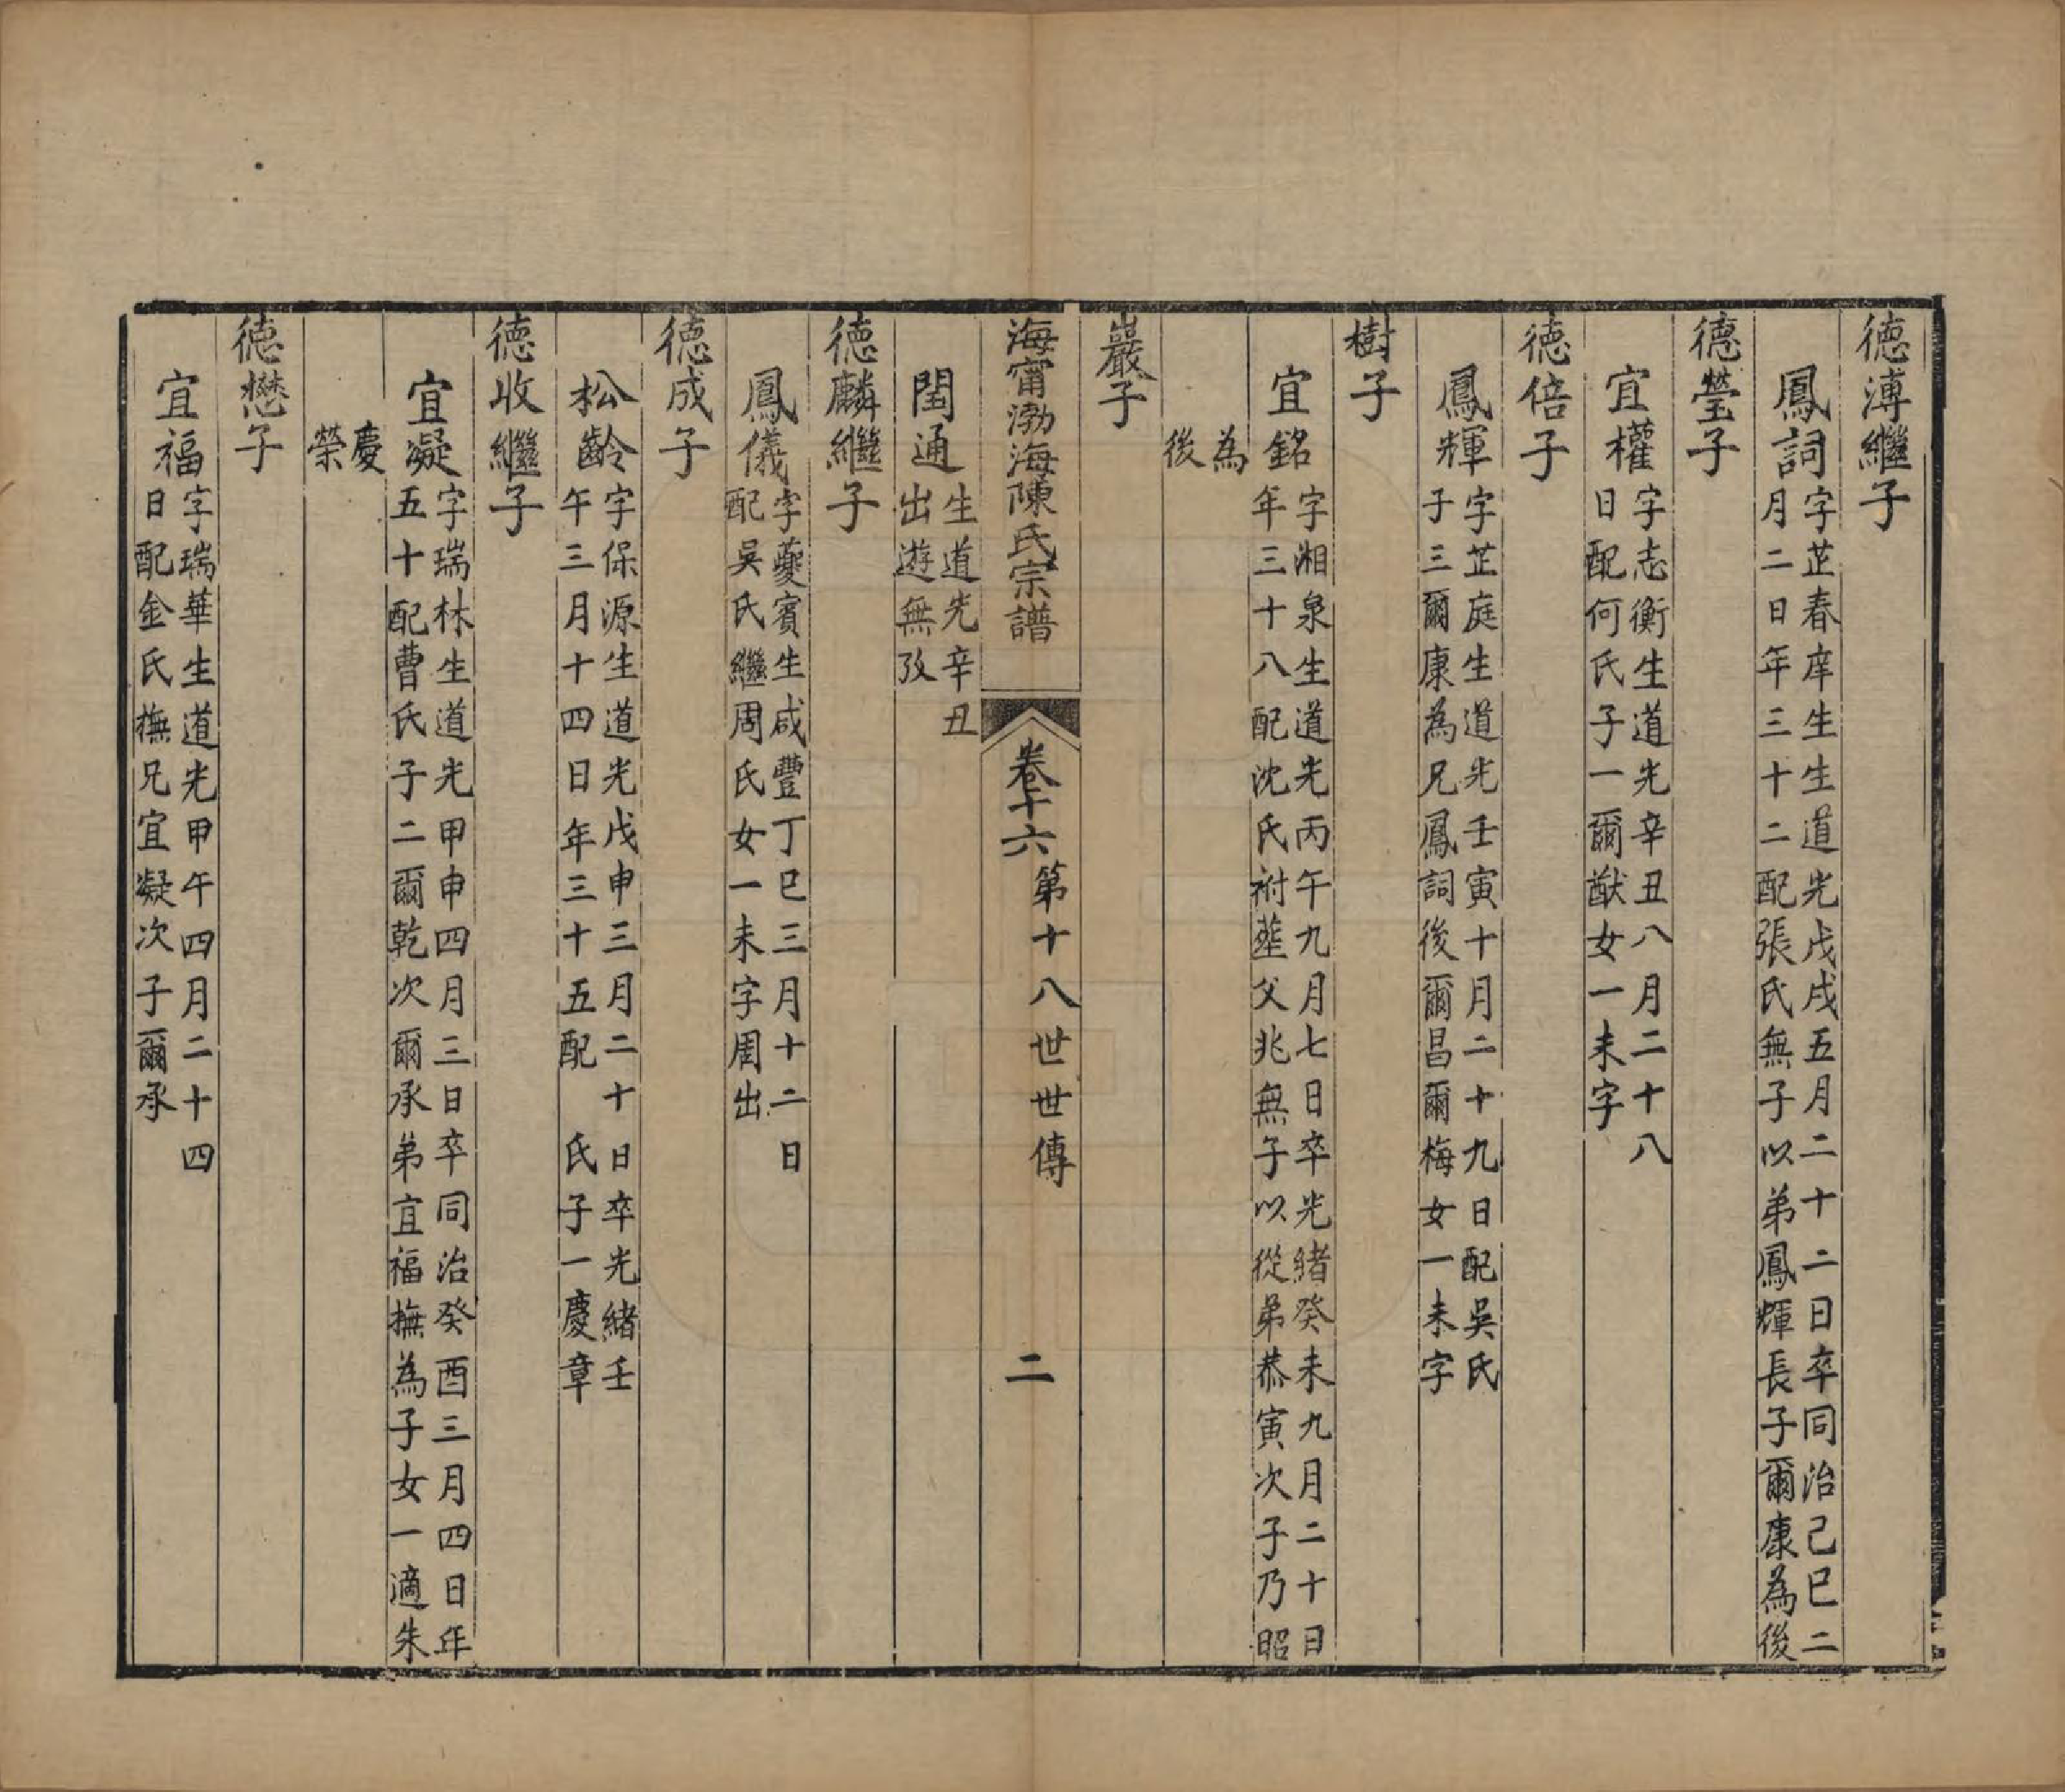 德溥繼子
鳳詞
字芷春庠生生道光戊戌五月二十二日卒同治己巳二
月二日年三十二配張氏無子以弟鳳輝長子爾康為後
德瑩子
宜權
字志衡生道光辛丑八月二十八
日配何氏子一爾猷女一未字
德倍子
鳳輝
字芷庭生道光壬寅十月二十九日配吳氏
子三爾康為兄鳳詞後爾昌爾梅女一未字
樹子
宜銘
字湘泉生道光丙午九月七日卒光緒癸未九月二十日
年三十八配沈氏祔塟父兆無子以從弟恭寅次子乃昭
為
後
巖子
海甯渤海陳氏宗譜
卷十六
第十八世世傳
二
閏通
生道光辛丑
出遊無攷
德麟繼子
鳳儀
字夔賓生咸豐丁巳三月十二日
配吳氏繼周氏女一未字周出
德成子
松齡
字保源生道光戊申三月二十日卒光緒壬
午三月十四日年三十五配 氏子一慶章
德收繼子
宜凝
字瑞林生道光甲申四月三日卒同治癸酉三月四日年
五十配曹氏子二爾乾次爾承弟宜福撫為子女一適朱
慶
榮
德懋子
宜福
字瑞華生道光甲午四月二十四
日配金氏撫兄宜凝次子爾承